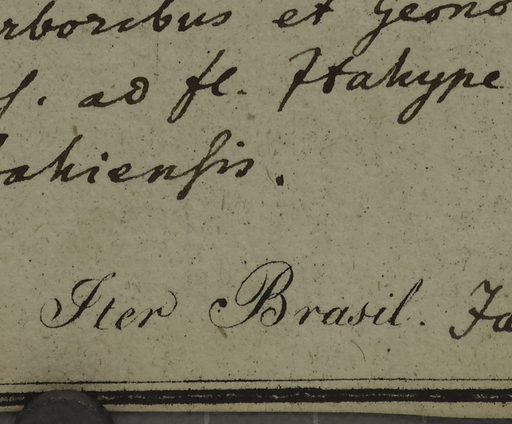 rboribus et Geono
s. ad fl. Itahype
ahiensis.
Iter Brasil. Ja